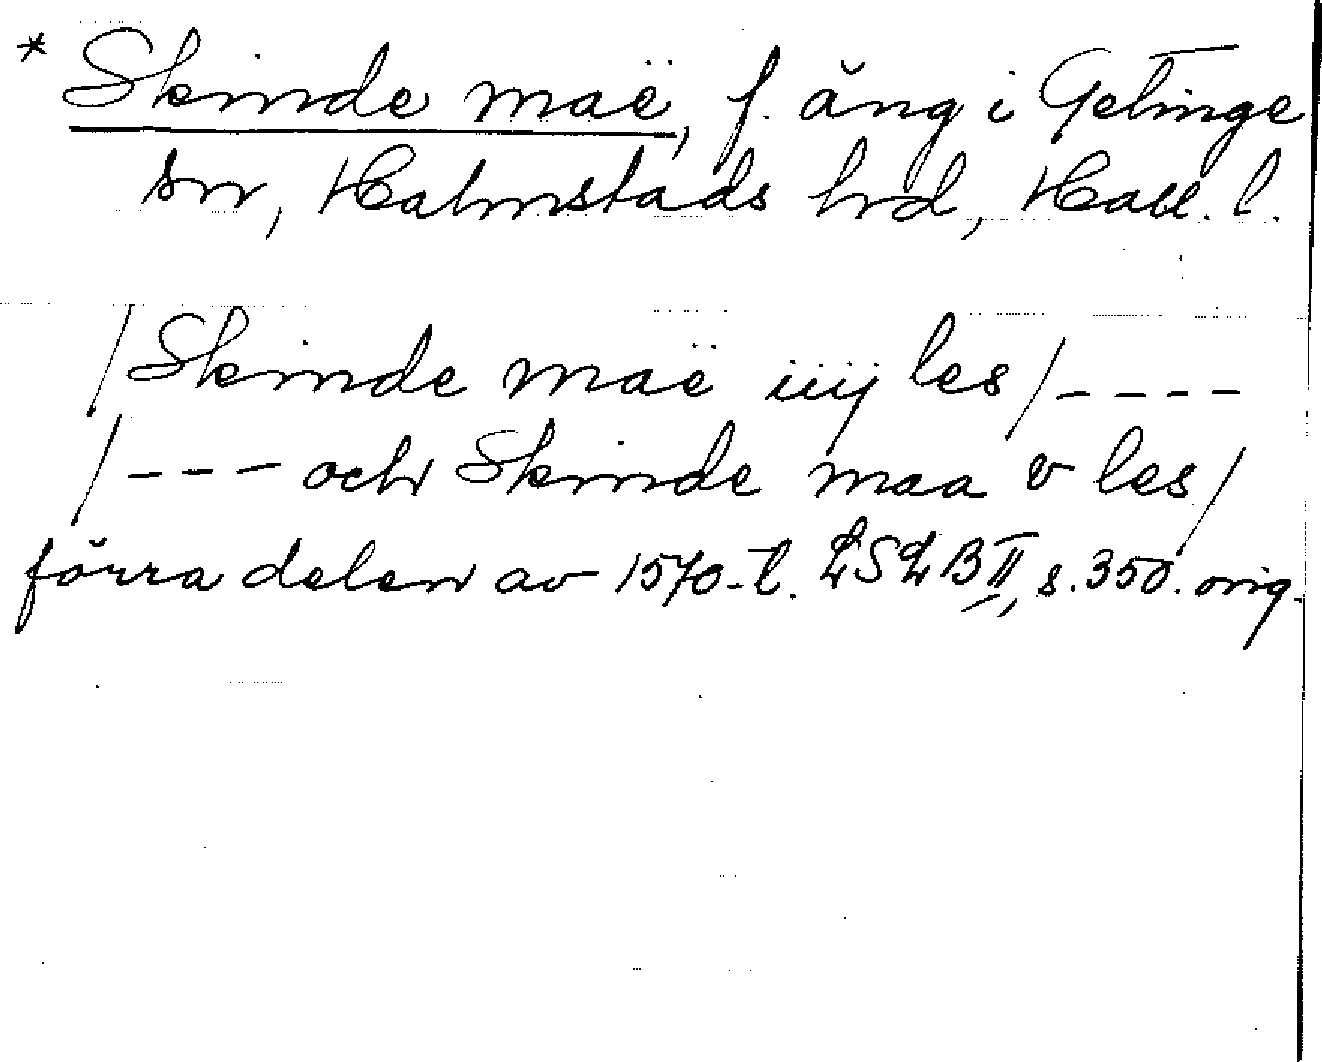 * Skinde maë, f. äng i Getinge
sn, Halmstads hd, Hall. l.
/Skinde maë iiij les/----
/--- och Skinde maa v les/
förra delen av 1570-t. LSLB II, s. 350. orig.